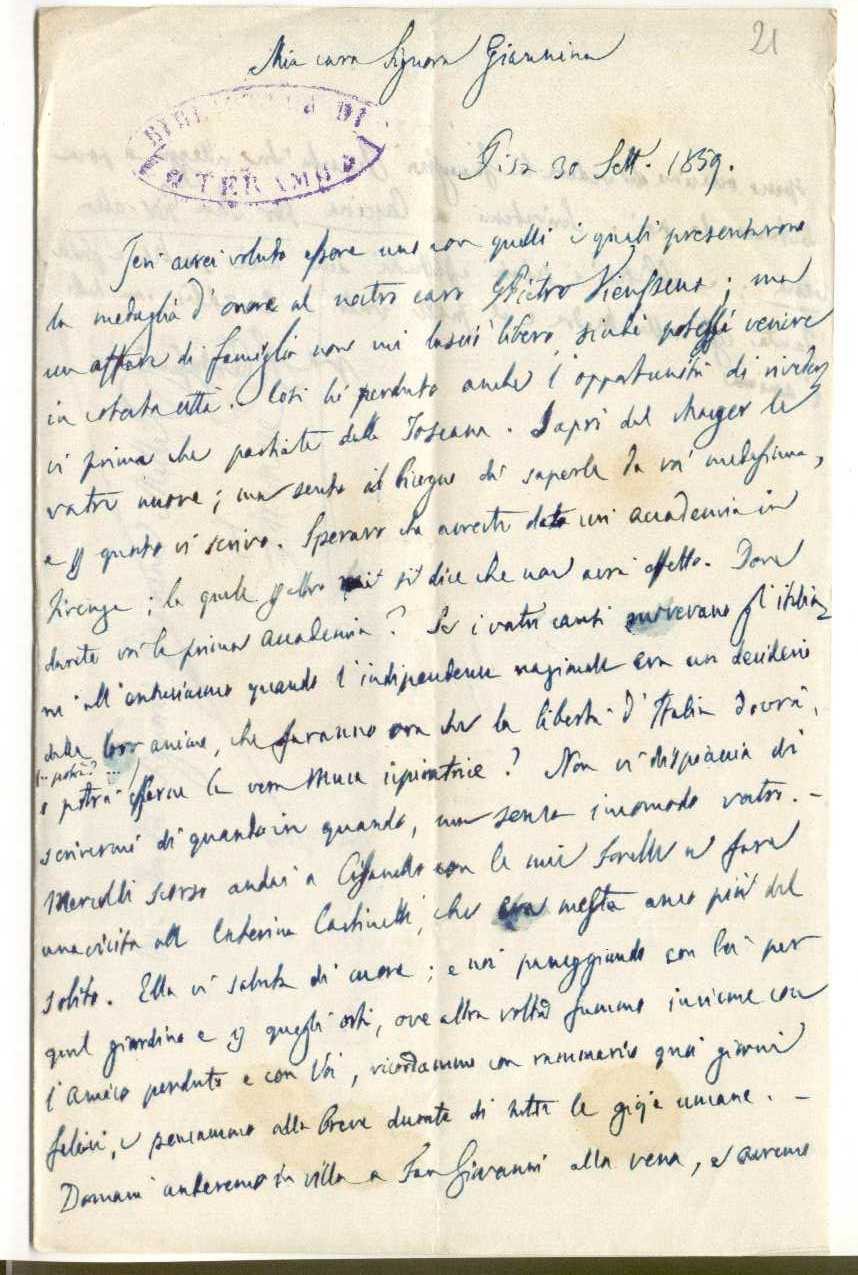 21
Mia cara Signora Giannina
BIBLIOTECA DI
TERAMO
Pisa 30 Sett. 1859.
Ieri avrei voluto essere uno con quelli i quali presentarono
la medaglia d'onore al nostro caro GPietro Vieusseux; ma
un affare di famiglia non mi lasciò libero, sicchè potessi venire
in cotesta città. Così hò perduto anche l'opportunità di riveder
vi prima che partiate dalla Toscana. Saprò dal Mayer le
vostre nuove; ma sento il bisogno di saperle da voi medesima,
e quanto vi scrivo. Speravo che avreste dato un'accademia in
Firenze; la quale si dice che non avrà effetto. Dove
darete voi la prima accademia? Se i vostri canti movevano gl'italia
ni all'entusiasmo quando l'indipendenza nazionale era un desiderio
delle loro anime, che faranno ora che la libertà d'Italia dovrà,
(.. potrà? ...)
e potrà esserne la vera Musa ispiratrice? Non vi dispiaccia di
scrivermi di quando in quando, ma senza incomodo vostro. –
Mercoldì scorso andai a Cisanello con le mie sorelle a fare
una visita alla Caterina Castinelli, che era mesta anco più del
solito. Ella vi saluta di cuore; e noi passeggiando con lei per
quel giardino e quegli orti, ove altra volta fummo insieme con
l'Amico perduto e con Voi, ricordammo con rammarico quei giorni
felici, e pensammo alla breve durata di tutte le gioje umane. –
Domani anderemo in villa a San Giovanni alla vena, e avremo